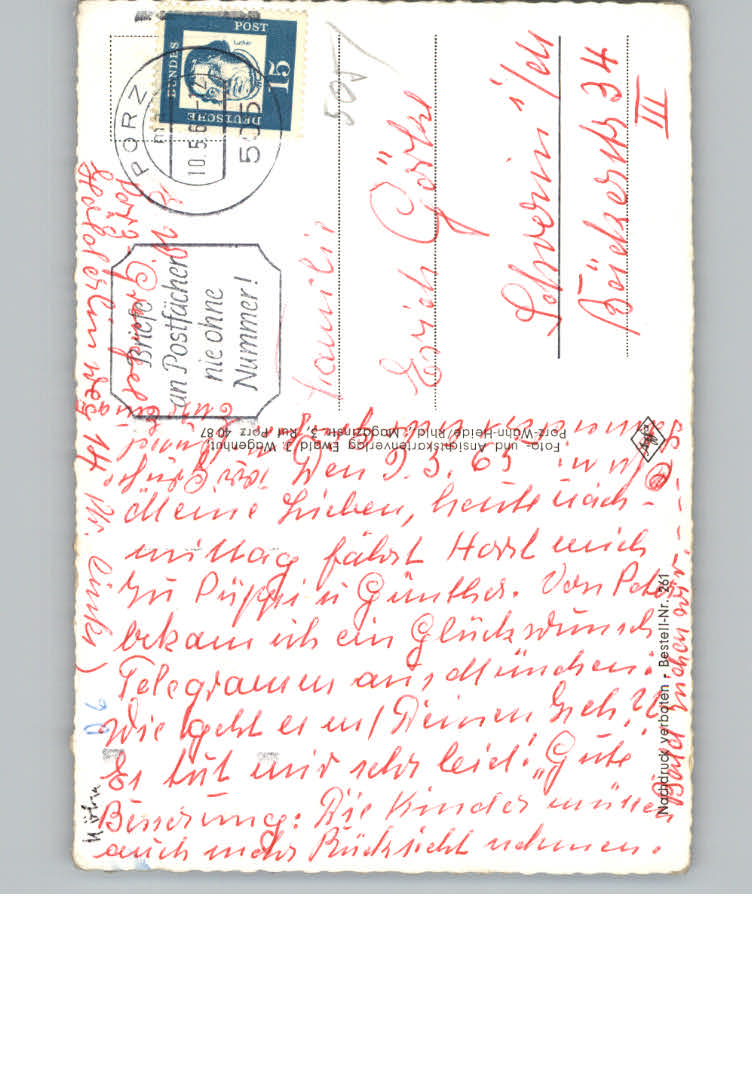 DEUTSCHE
BUNDES
POST
15
Luther
PORZ
10.5.6
505
Briefe
an Postfächer
nie ohne
Nummer!
505
Familie
Erich Görke
Schwerin i/M
Bäckerstr 34
III
Foto- und Ansichtskartenverlag Ewald J. Wagenhut,
Porz-Wahn-Heide/Rhld., Magazinstr. 3, Ruf Porz 40 87
Nachdruck verboten - Bestell-Nr. 261
Porz
Hölderlin weg 14
den 9.5.63
Meine Lieben, heute nach-
mittag fährt Horst mich
zu Püppi u Günther. Von Peter
bekam ich ein Glückwunsch
Telegramm aus München.
Wie geht es mit Deinen
Es tut mir sehr leid! "Gute
Besserung: Die Kinder müssen
auch mehr Rücksicht nehmen.
Bald